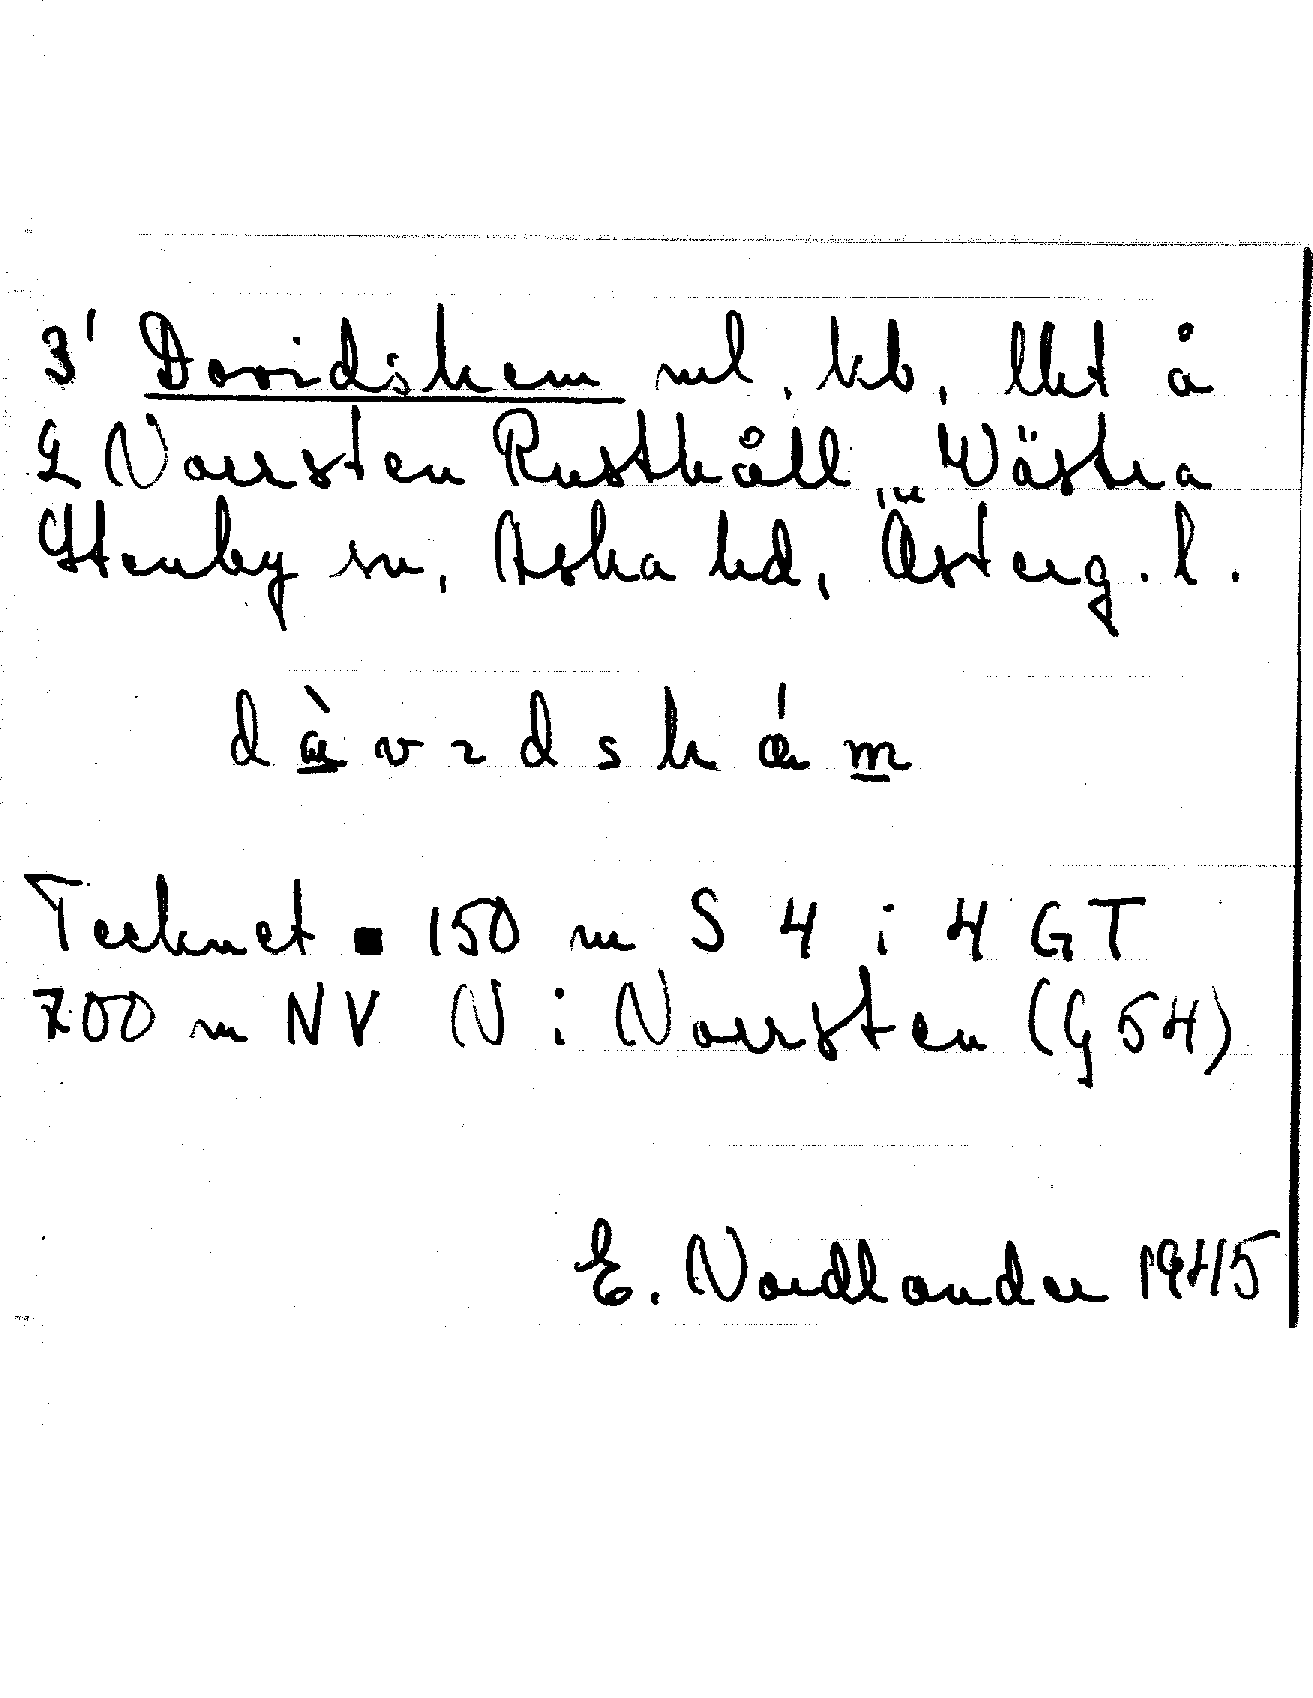 3' Davidshem ml. kb, lht å
2 Norrsten Rusthåll, Västra
Stenby sn, Aska hd, Österg. l.
dàvıdshǽm
Tecknet ▪ 150 m S 4 i 4 GT
700 m NV N i Norrsten (G 54)
E. Nordlander 1945